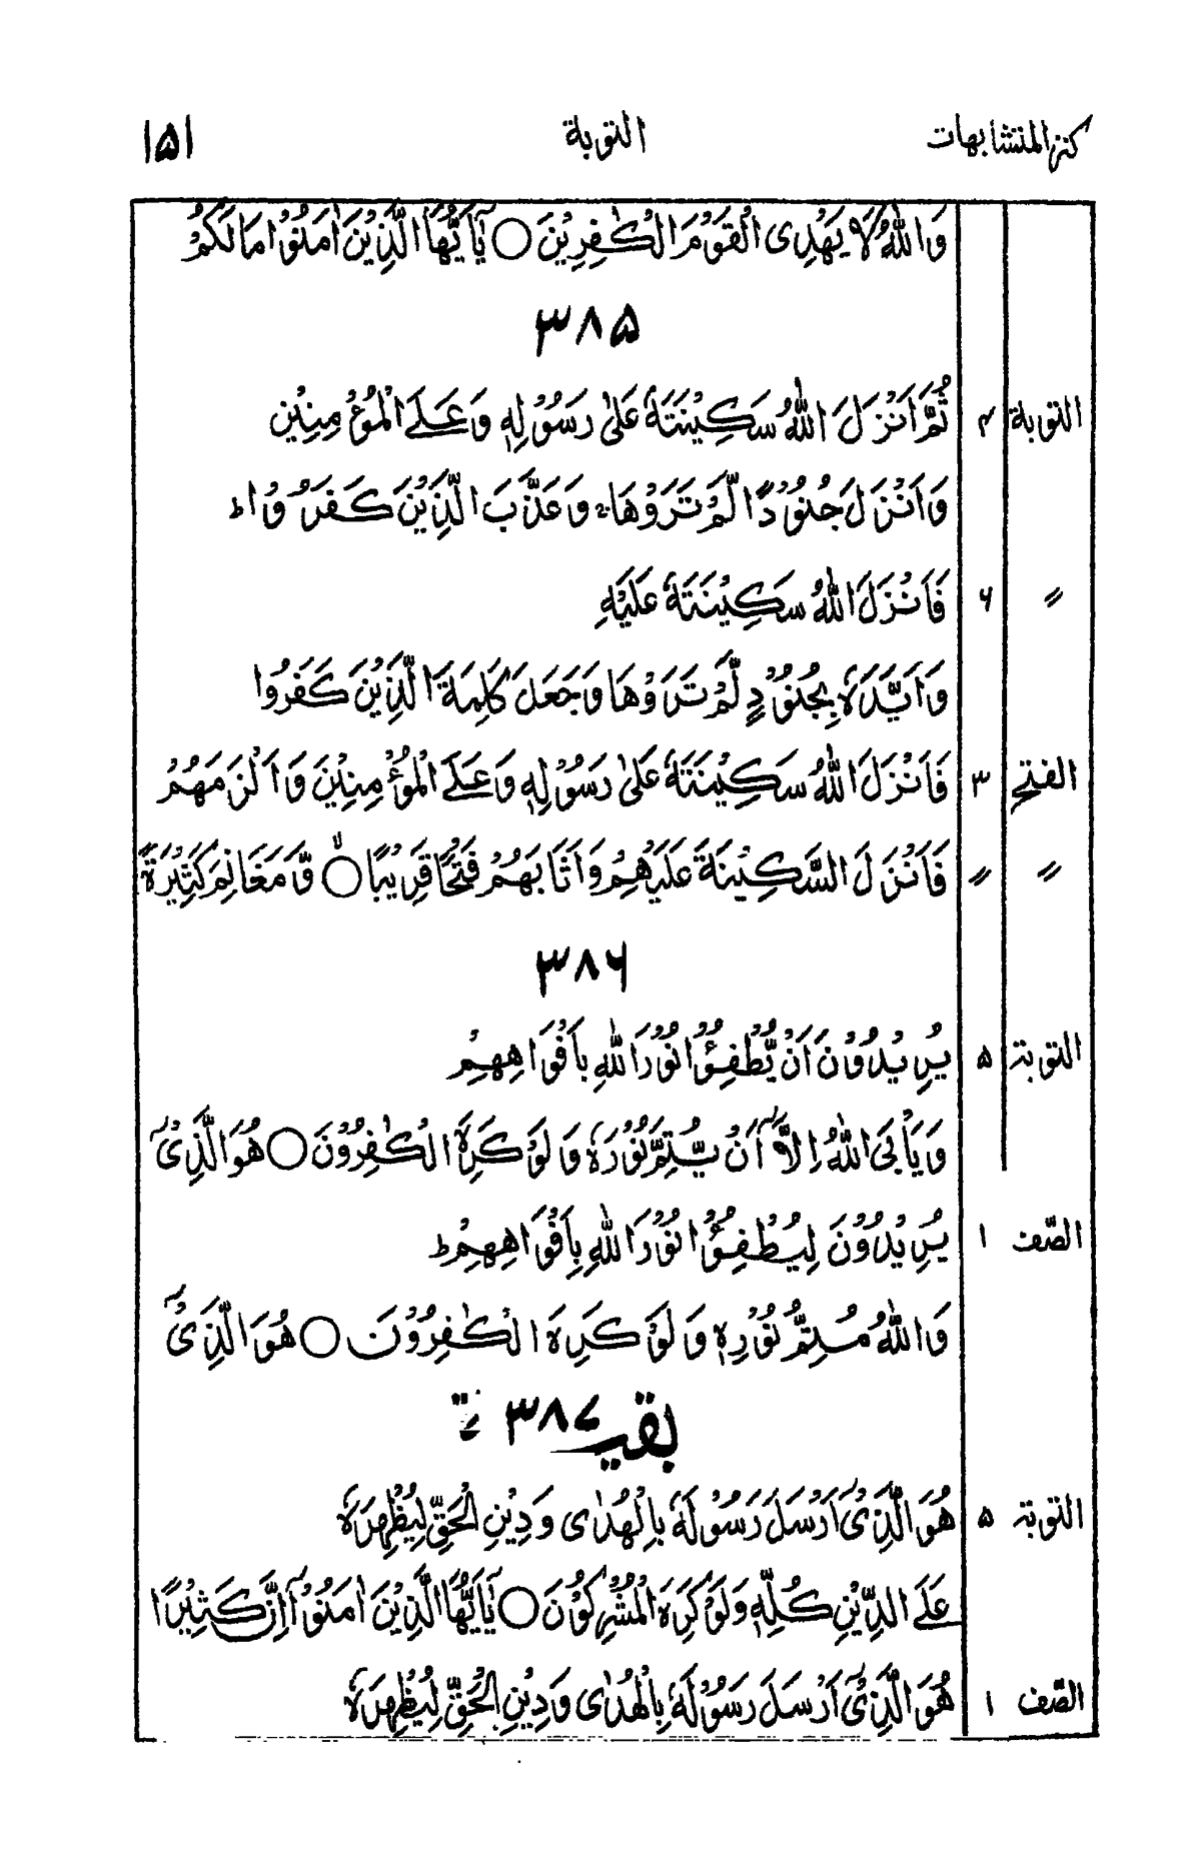 كنز المتشابهات التوبة ١۵١
وَاللّٰهُ لَا يَهْدِى الْقَوْمَ الْكٰفِرِيْنَ ○ يٰۤاَيُّهَا الَّذِيْنَ اٰمَنُوْا مَا لَكُمْ
٣٨۵
التوبة ۴ ثُمَّ اَنْزَلَ اللّٰهُ سَكِيْنَتَهٗ عَلٰى رَسُوْلِهٖ وَعَلَى الْمُؤْمِنِيْنَ
وَاَنْزَلَ جُنُوْدًا لَّمْ تَرَوْهَا ۚ وَعَذَّبَ الَّذِيْنَ كَفَرُوْا ؕ
〃 ۶ فَاَنْزَلَ اللّٰهُ سَكِيْنَتَهٗ عَلَيْهِ
وَاَيَّدَهٗ بِجُنُوْدٍ لَّمْ تَرَوْهَا وَجَعَلَ كَلِمَةَ الَّذِيْنَ كَفَرُوا
الفتح ٣ فَاَنْزَلَ اللّٰهُ سَكِيْنَتَهٗ عَلٰى رَسُوْلِهٖ وَعَلَى الْمُؤْمِنِيْنَ وَاَلْزَمَهُمْ
〃 〃 فَاَنْزَلَ السَّكِيْنَةَ عَلَيْهِمْ وَاَثَابَهُمْ فَتْحًا قَرِيْبًا ○ۙ وَّمَغَانِمَ كَثِيْرَةً
٣٨۶
التوبة ۵ يُرِيْدُوْنَ اَنْ يُّطْفِـُٔوْا نُوْرَ اللّٰهِ بِاَفْوَاهِهِمْ
وَيَاْبَى اللّٰهُ اِلَّاۤ اَنْ يُّتِمَّ نُوْرَهٗ وَلَوْ كَرِهَ الْكٰفِرُوْنَ ○ هُوَ الَّذِىْۤ
الصّف ١ يُرِيْدُوْنَ لِيُطْفِـُٔوْا نُوْرَ اللّٰهِ بِاَفْوَاهِهِمْ ؕ
وَاللّٰهُ مُتِمُّ نُوْرِهٖ وَلَوْ كَرِهَ الْكٰفِرُوْنَ ○ هُوَ الَّذِىْۤ
بقيہ ٣٨٧
التوبة ۵ هُوَ الَّذِىْۤ اَرْسَلَ رَسُوْلَهٗ بِالْهُدٰى وَدِيْنِ الْحَقِّ لِيُظْهِرَهٗ
عَلَى الدِّيْنِ كُلِّهٖ وَلَوْ كَرِهَ الْمُشْرِكُوْنَ ○ يٰۤاَيُّهَا الَّذِيْنَ اٰمَنُوْۤا اِنَّ كَثِيْرًا
الصّف ١ هُوَ الَّذِىْۤ اَرْسَلَ رَسُوْلَهٗ بِالْهُدٰى وَدِيْنِ الْحَقِّ لِيُظْهِرَهٗ